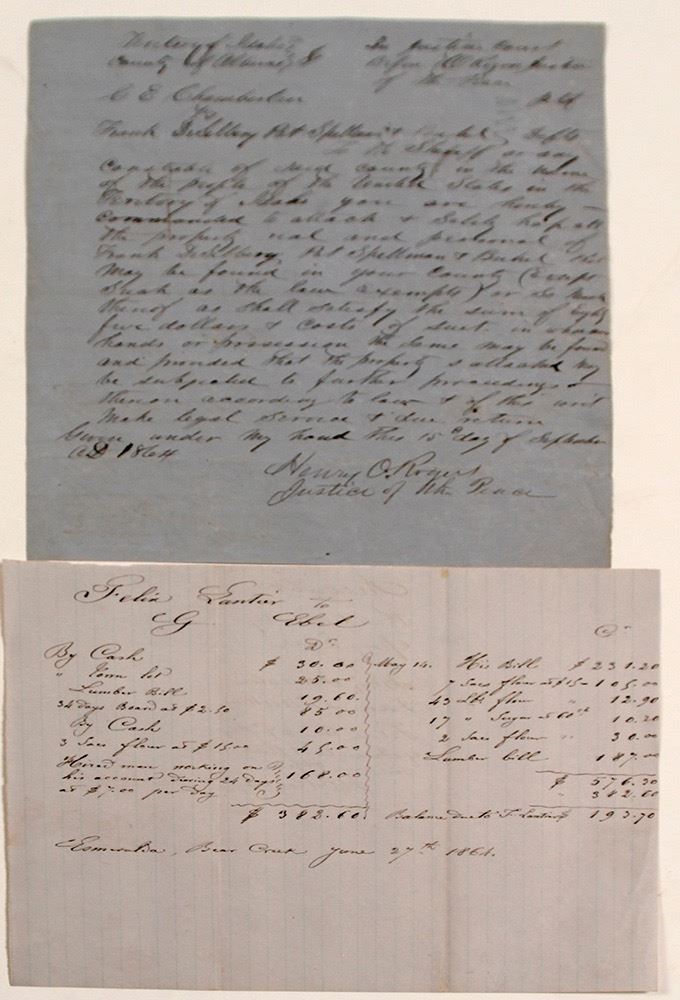 Territory of Idaho
County of Alturas
In Justice Court
Before
of the Peace
C E Chamberlin
Plff
vs
Frank Pat Spellman & Defts
To the Sheriff or any
Constable of said county in the name
of the People of the United States in the
Territory of Idaho you are hereby
Commanded to attach & safely keep all
the property real and personal of
Frank Pat Spellman & that
may be found in your County (Except
Such as the law exempts) or so much
thereof as shall satisfy the sum of Eighty
five dollars & costs of suit in whosoever
hands or possession the same may be found
and provided that the property so attached may
be subjected to further proceedings
thereon according to law & of this writ
Make legal Service & due return
Given under My hand this 15th day of September
AD 1864
Henry O. Rogers
Justice of the Peace
Felix Lantier to
G Ebel
Dr
By Cash $ 30.00
" Town lot 25.00
Lumber Bill 19.60
34 days Board at $2.50 85.00
By Cash 10.00
3 Sacs flour at $15.00 45.00
Hired man working on
his account during 24 days 168.00
at $7.00 per day
$ 382.60
Cr
May 14. His Bill $ 231.20
7 Sacs flour at $15– 105.00
43 lbs flour " 12.90
17 " Sugar at 60ct 10.20
2 Sacs flour " 30.00
Lumber bill 187.00
$ 576.30
" 382.60
Balance Due to F. Lantier $ 193.70
Esmeralda, Bear Creek June 27th 1864.